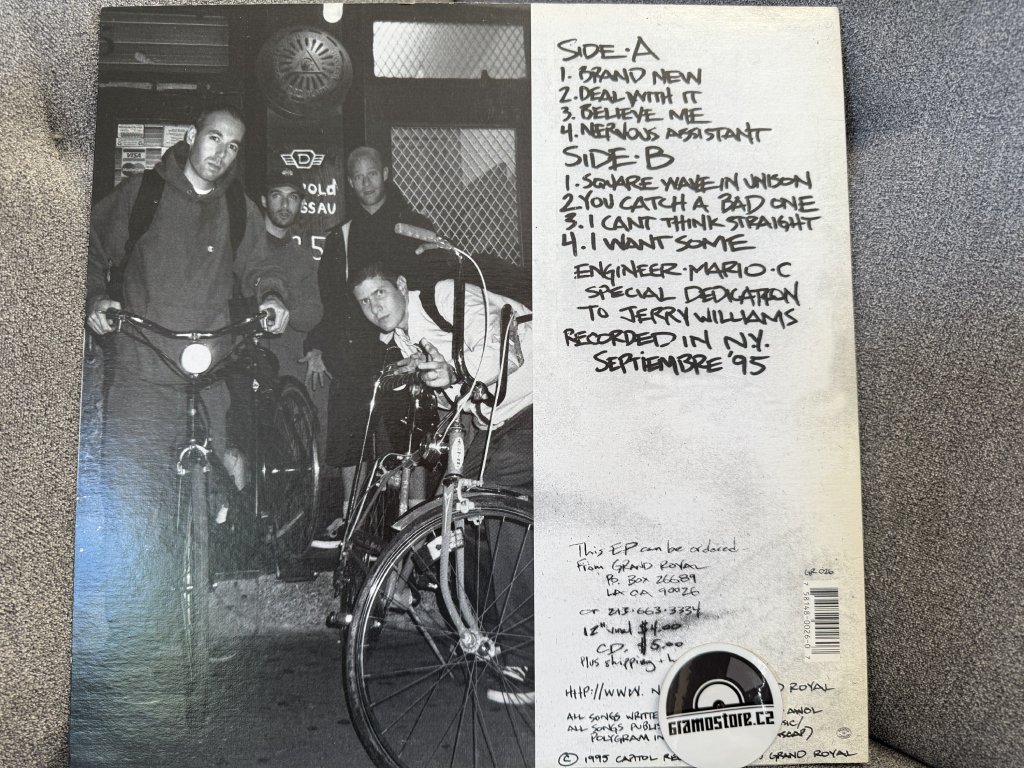 SIDE·A
1. BRAND NEW
2. DEAL WITH IT
3. BELIEVE ME
4. NERVOUS ASSISTANT
SIDE·B
1. SQUARE WAVE IN UNISON
2. YOU CATCH A BAD ONE
3. I CANT THINK STRAIGHT
4. I WANT SOME
ENGINEER·MARIO·C
SPECIAL DEDICATION
TO JERRY WILLIAMS
RECORDED IN N.Y.
SEPTIEMBRE '95
This EP can be ordered
From GRAND ROYAL
P.O. Box 26689
LA CA 90026
or 213·663·3334
12" vinyl $4.00
CD. $5.00
Plus shipping +
HTTP://WWW. ROYAL
ALL SONGS AWOL
ALL SONGS
POLYGRAM
© 1995 CAPITOL GRAND ROYAL
GR 026
7 58148 0026-0 7
GRAMOSTORE.CZ
D
OLD
SSAU
5